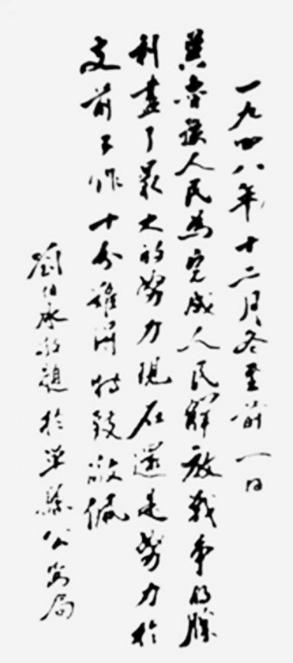 一九四八年十二月冬至前一日
冀鲁豫人民为完成人民解放战争的勝
利尽了最大的努力现在还是努力於
支前工作十分难得特致敬佩
劉伯承敬題於单县公安局